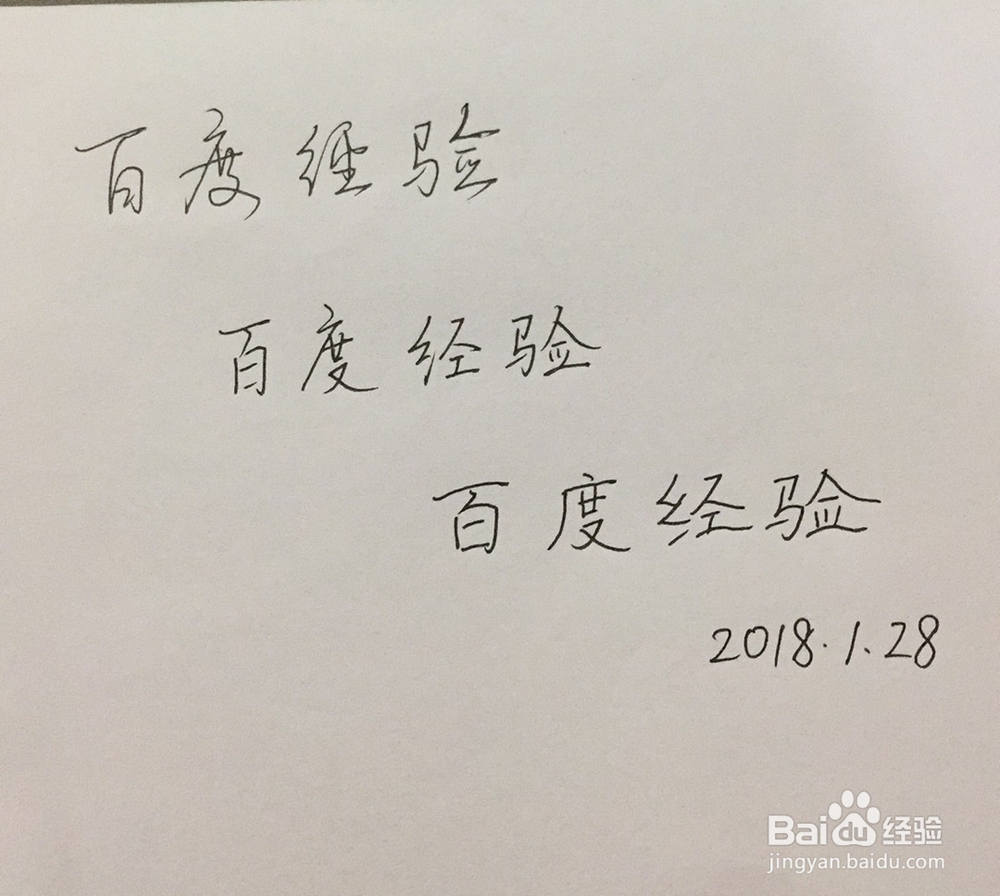 百度经验
百度经验
百度经验
2018.1.28
Baidu经验
jingyan.baidu.com